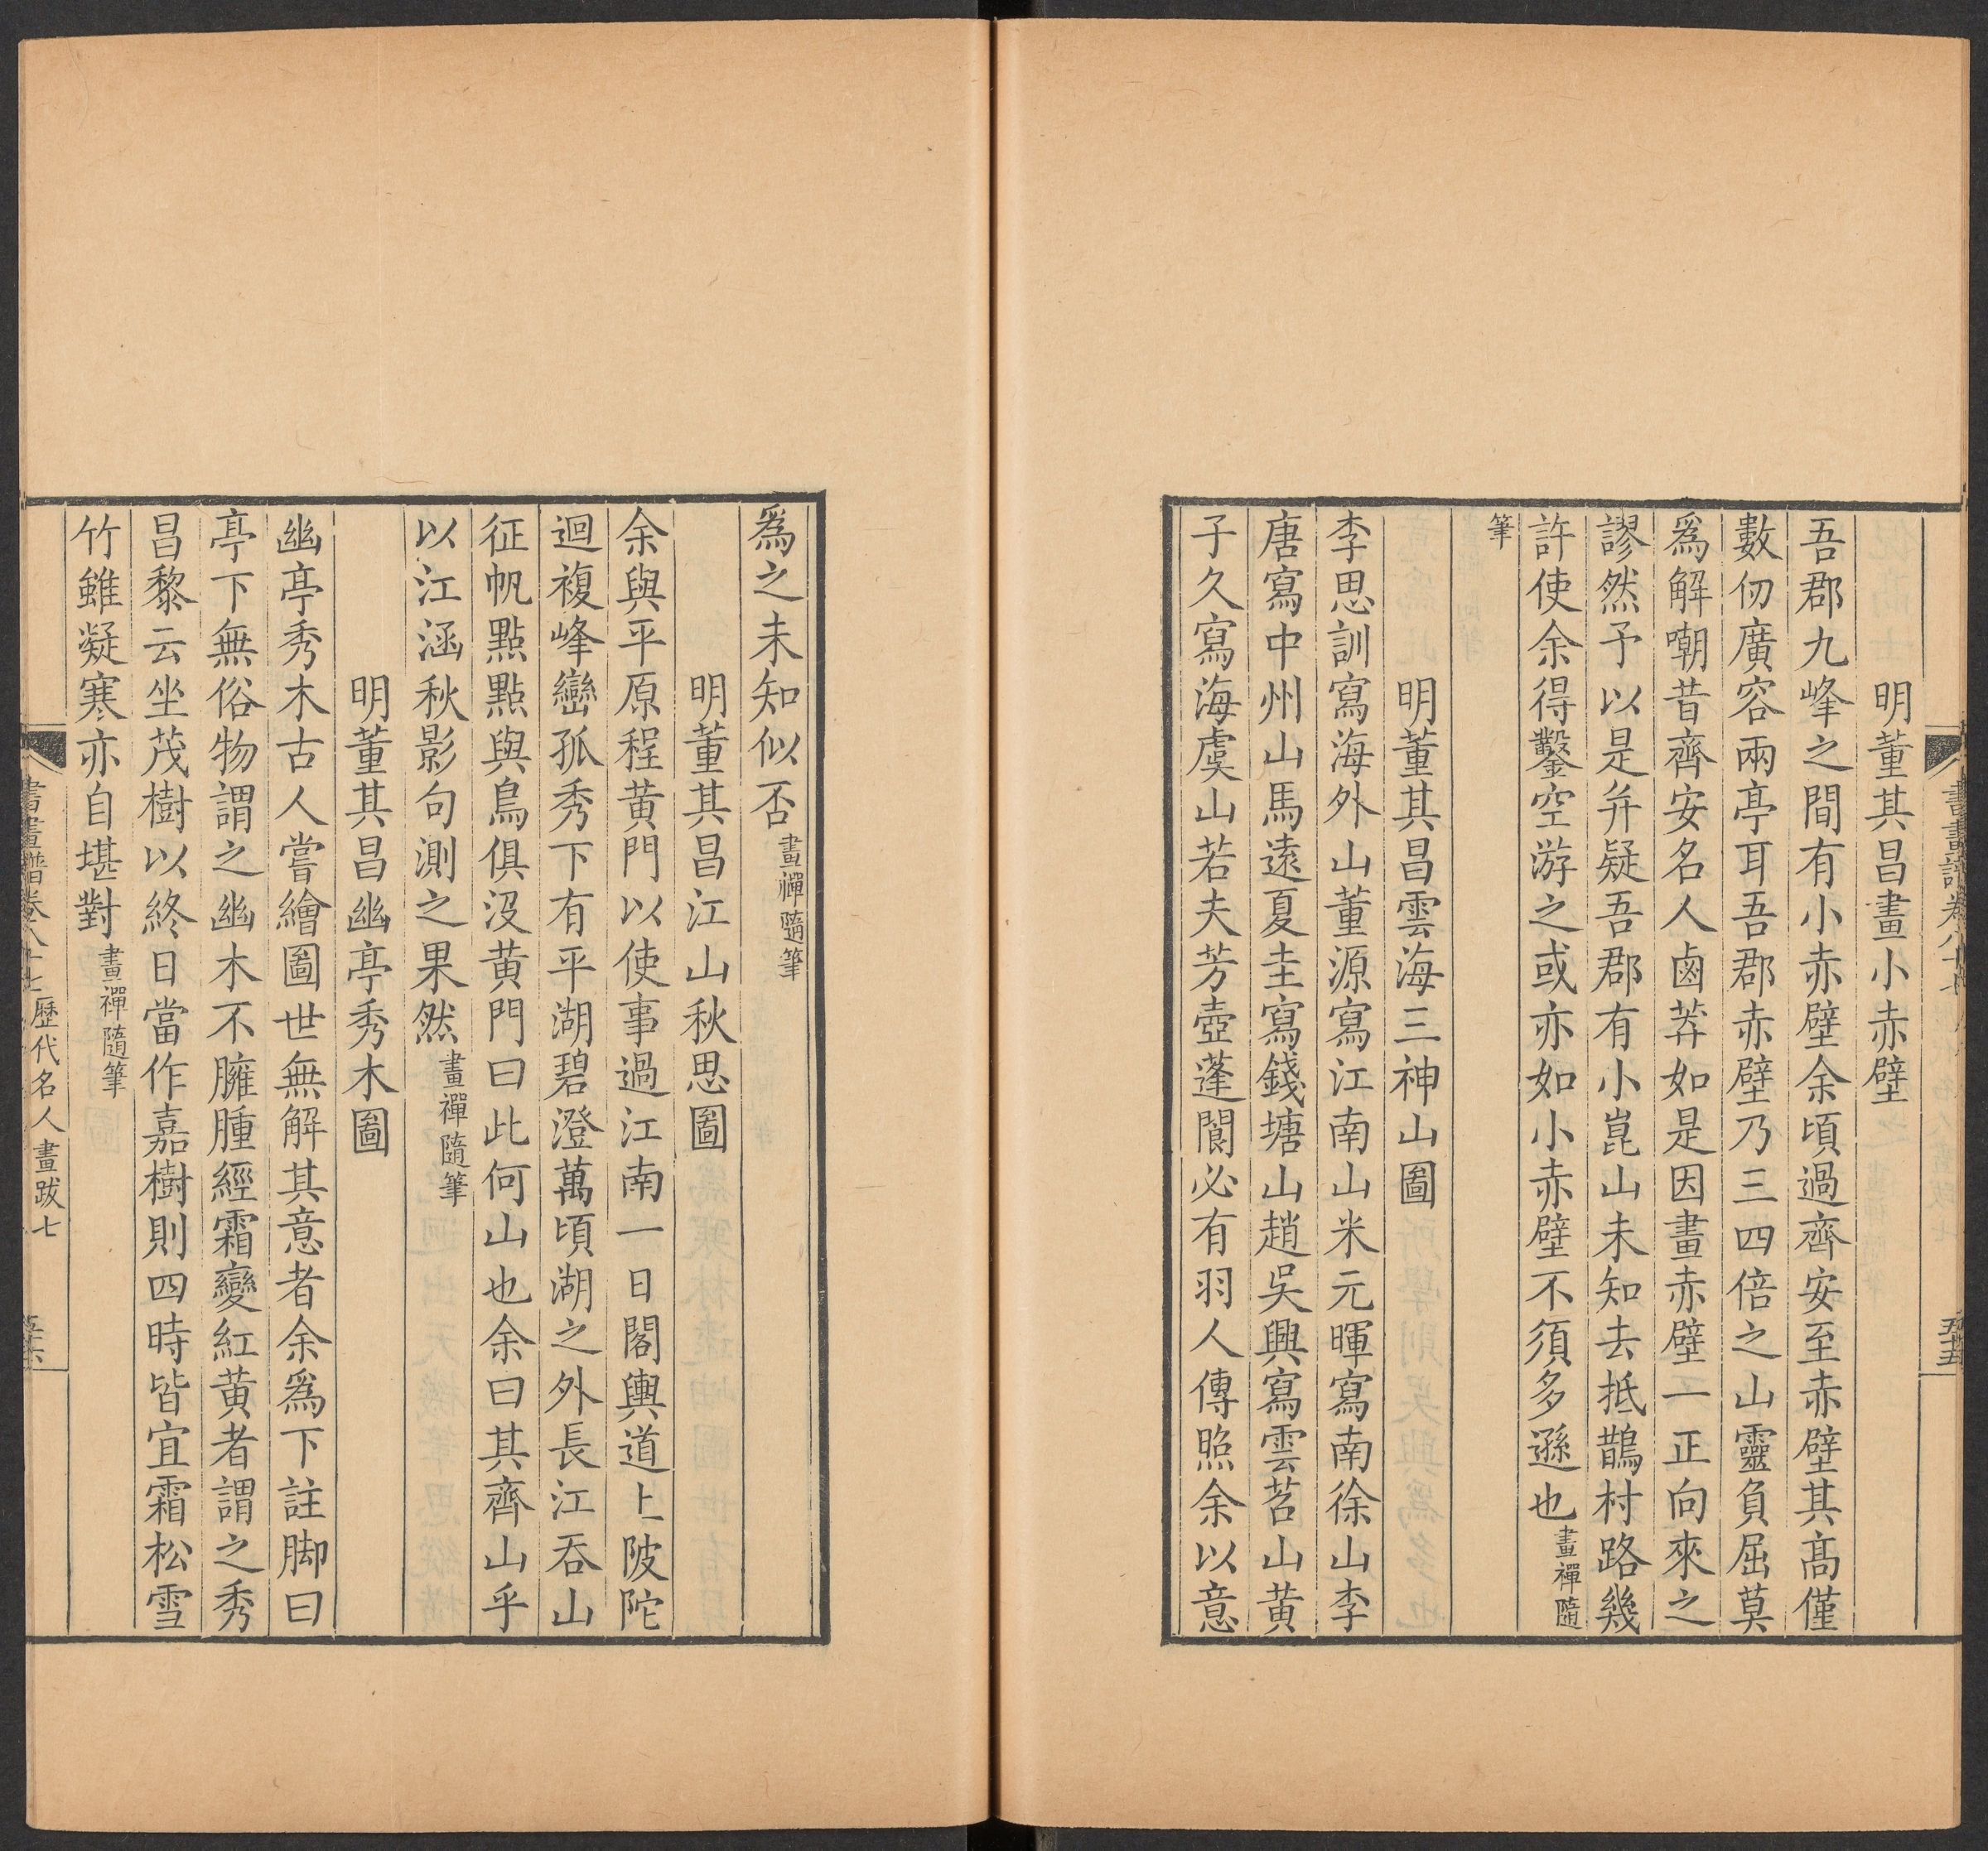 明董其昌畫小赤壁
吾郡九峰之間有小赤壁余頃過齊安至赤壁其髙僅
數仞廣容兩亭耳吾郡赤壁乃三四倍之山靈負屈莫
爲解嘲昔齊安名人鹵莽如是因畫赤壁一正向來之
謬然予以是并疑吾郡有小崑山未知去抵鵲村路幾
許使余得鑿空游之或亦如小赤壁不須多遜也畫禪隨
筆
明董其昌雲海三神山圖
李思訓寫海外山董源寫江南山米元暉寫南徐山李
唐寫中州山馬遠夏圭寫錢塘山趙吳興寫雲苕山黄
子久寫海虞山若夫芳壺蓬閬必有羽人傳照余以意
爲之未知似否畫禪隨筆
明董其昌江山秋思圖
余與平原程黄門以使事過江南一日閣輿道上陂陀
迴複峰巒孤秀下有平湖碧澄萬頃湖之外長江吞山
征帆點點與鳥俱没黄門曰此何山也余曰其齊山乎
以江涵秋影句測之果然畫禪隨筆
明董其昌幽亭秀木圖
幽亭秀木古人嘗繪圖世無解其意者余爲下註脚曰
亭下無俗物謂之幽木不臃腫經霜變紅黄者謂之秀
昌黎云坐茂樹以終日當作嘉樹則四時皆宜霜松雪
竹雖凝寒亦自堪對畫禪隨筆
書畫譜卷八十七 歷代名人畫跋七